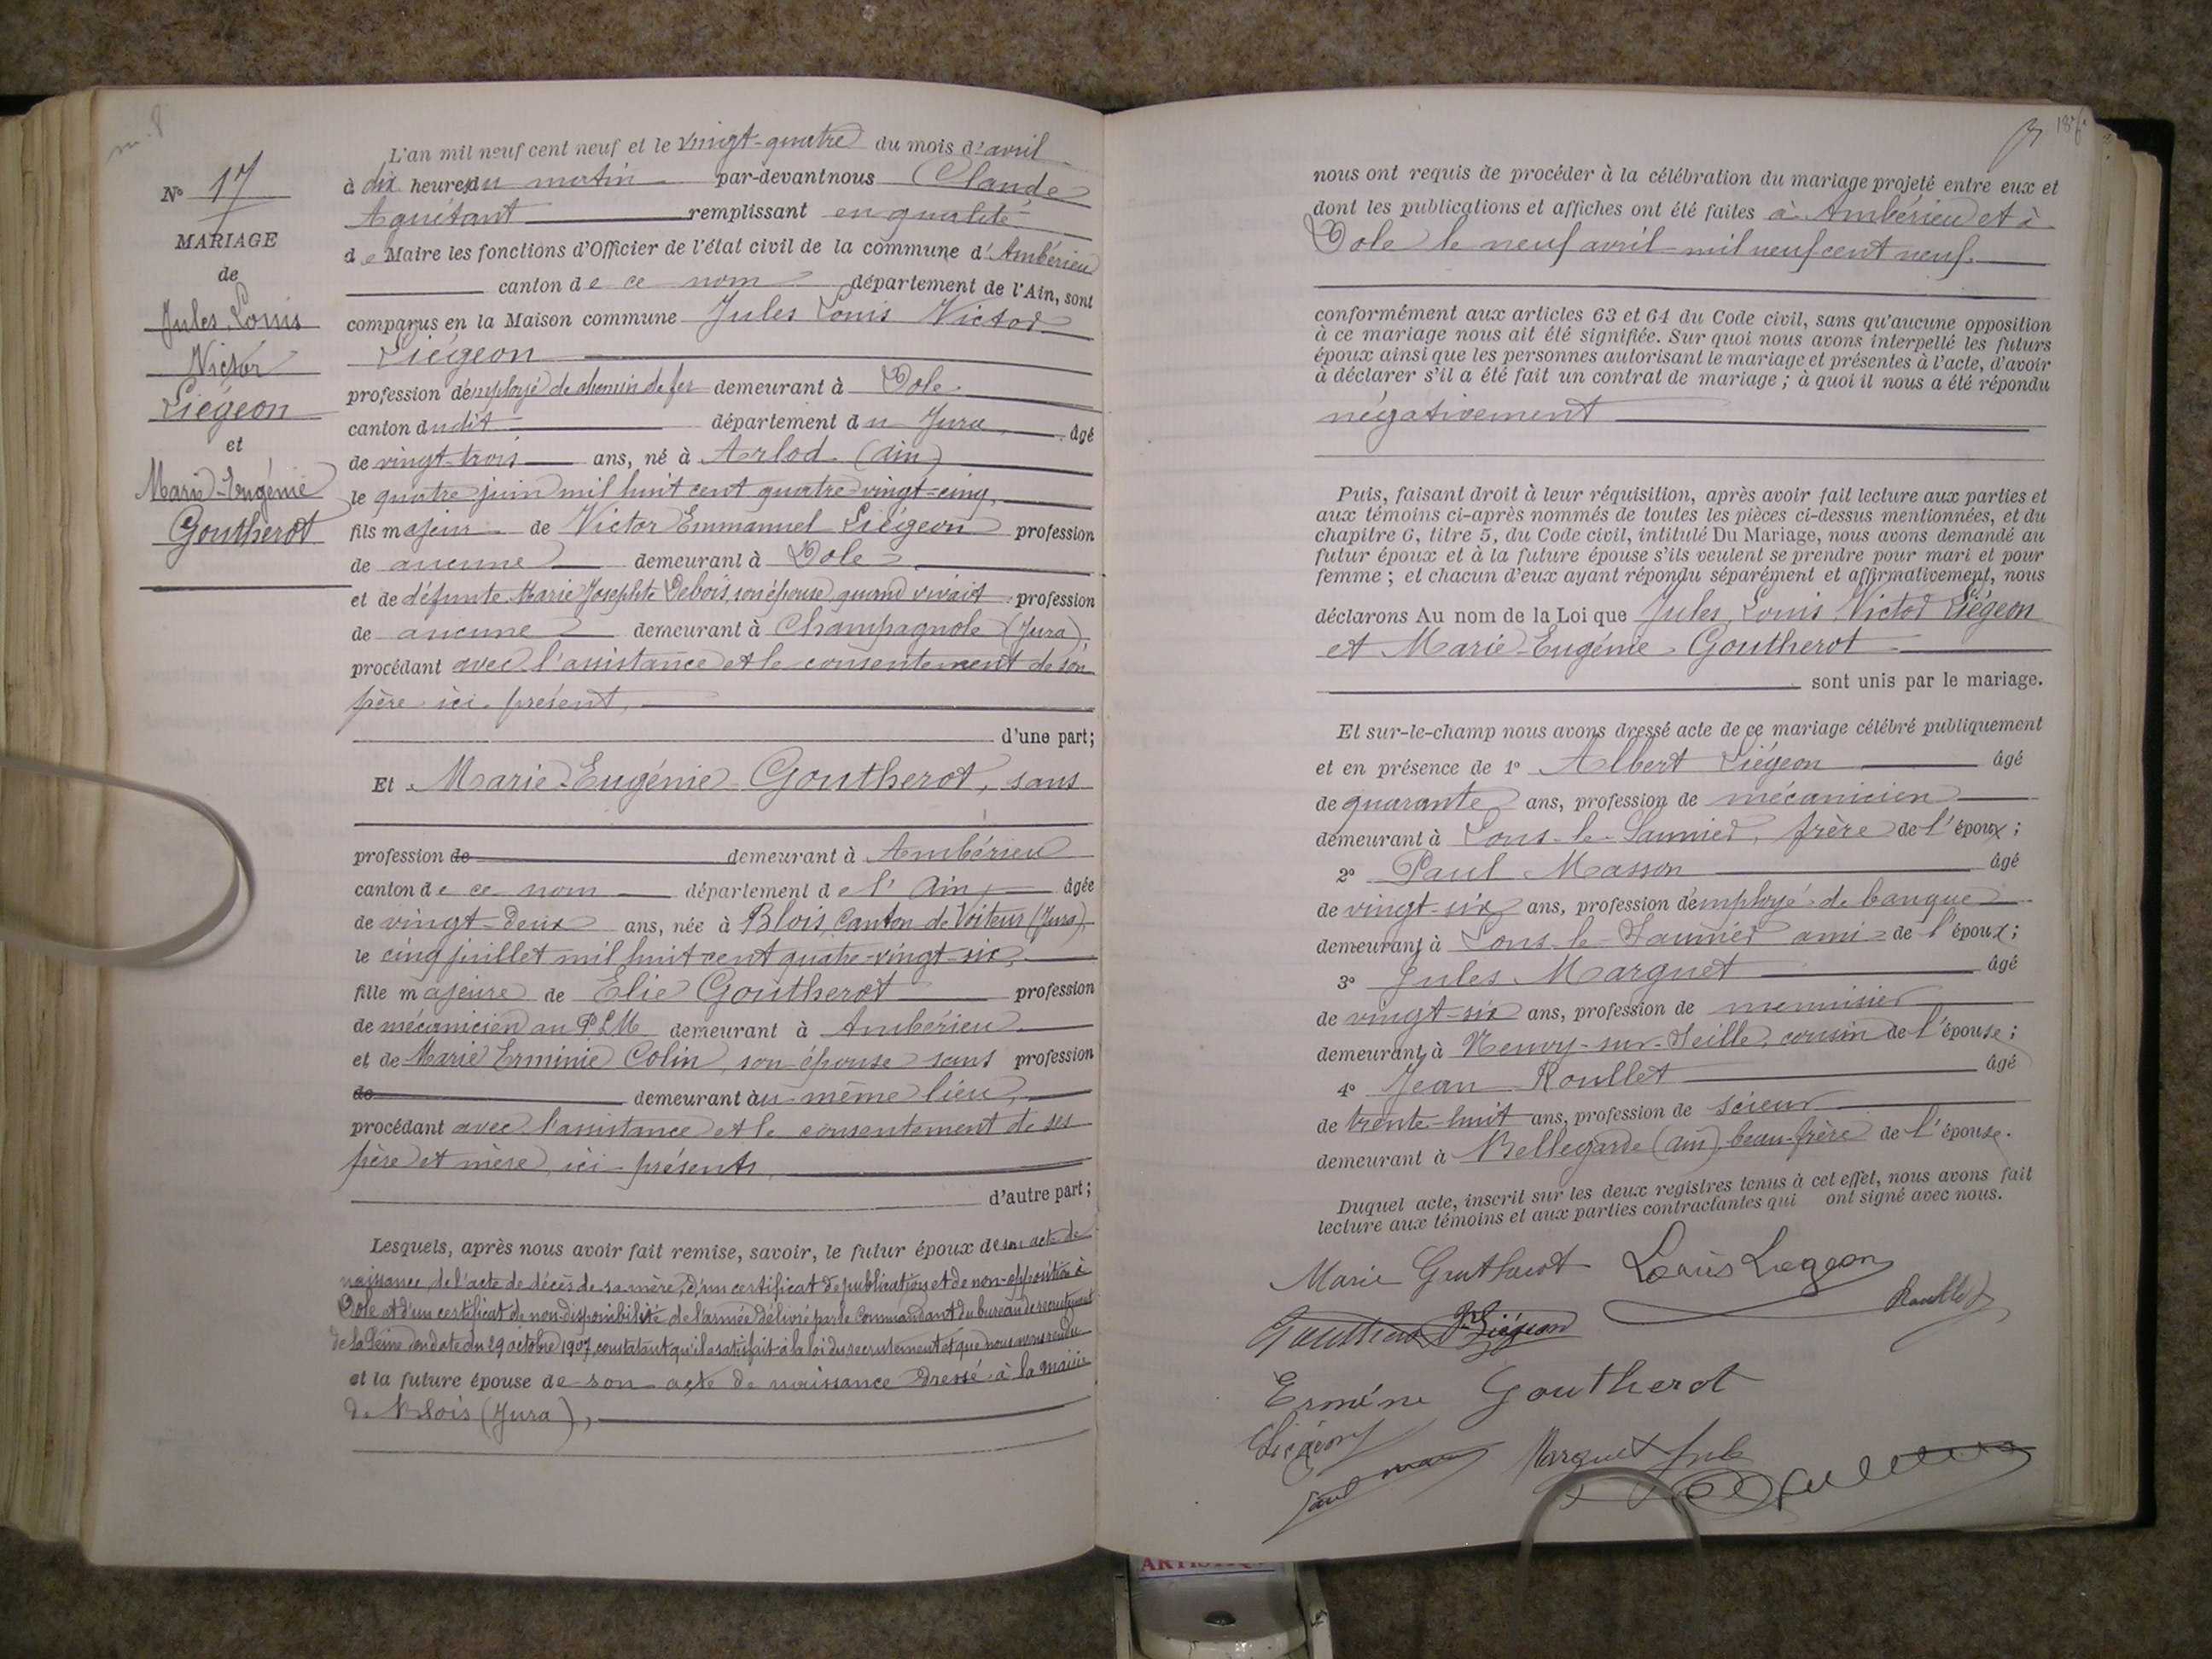 N° 17
MARIAGE
de
Jules Louis
Victor
Liégeon
et
Marie-Eugénie
Goutherot
L'an mil neuf cent neuf et le vingt-quatre du mois d'avril
à dix heures du matin par-devant nous Claude
Aguétant remplissant en qualité
de Maire les fonctions d'Officier de l'état civil de la commune d'Ambérieu
canton de ce nom département de l'Ain, sont
comparus en la Maison commune Jules Louis Victor
Liégeon
profession d'employé de chemin de fer demeurant à Dole
canton dudit département du Jura âgé
de vingt-trois ans, né à Arlod (Ain)
le quatre juin mil huit cent quatre-vingt-cinq,
fils majeur de Victor Emmanuel Liégeon profession
de aucune demeurant à Dole
et de défunte Marie Josephte Debois, son épouse quand vivait profession
de aucune demeurant à Champagnole (Jura)
procédant avec l'assistance et le consentement de son
père ici présent,
d'une part;
Et Marie-Eugénie Goutherot, sans
profession de demeurant à Ambérieu
canton de ce nom département de l'Ain, âgée
de vingt-deux ans, née à Blois, Canton de Voiteur (Jura)
le cinq juillet mil huit cent quatre-vingt-six,
fille majeure de Elie Goutherot profession
de mécanicien au PLM demeurant à Ambérieu
et de Marie Erminie Colin, son épouse sans profession
de demeurant au même lieu,
procédant avec l'assistance et le consentement de ses
père et mère, ici présents,
d'autre part;
Lesquels, après nous avoir fait remise, savoir, le futur époux de son acte de
naissance, de l'acte de décès de sa mère, d'un certificat de publication et de non-opposition à
Dole et d'un certificat de non-disponibilité de l'armée délivré par le Commandant du bureau de recrutement
de la Seine en date du 29 octobre 1907, constatant qu'il a satisfait à la loi du recrutement et que nous avons rendu
et la future épouse de son acte de naissance dressé à la mairie
de Blois (Jura),
nous ont requis de procéder à la célébration du mariage projeté entre eux et
dont les publications et affiches ont été faites à Ambérieu et à
Dole le neuf avril mil neuf cent neuf.
conformément aux articles 63 et 64 du Code civil, sans qu'aucune opposition
à ce mariage nous ait été signifiée. Sur quoi nous avons interpellé les futurs
époux ainsi que les personnes autorisant le mariage et présentes à l'acte, d'avoir
à déclarer s'il a été fait un contrat de mariage ; à quoi il nous a été répondu
négativement
Puis, faisant droit à leur réquisition, après avoir fait lecture aux parties et
aux témoins ci-après nommés de toutes les pièces ci-dessus mentionnées, et du
chapitre 6, titre 5, du Code civil, intitulé Du Mariage, nous avons demandé au
futur époux et à la future épouse s'ils veulent se prendre pour mari et pour
femme ; et chacun d'eux ayant répondu séparément et affirmativement, nous
déclarons Au nom de la Loi que Jules Louis Victor Liégeon
et Marie-Eugénie Goutherot
sont unis par le mariage.
Et sur-le-champ nous avons dressé acte de ce mariage célébré publiquement
et en présence de 1° Albert Liégeon âgé
de quarante ans, profession de mécanicien
demeurant à Lons-le-Saunier, frère de l'époux ;
2° Paul Masson âgé
de vingt-six ans, profession d'employé de banque
demeurant à Lons-le-Saunier ami de l'époux ;
3° Jules Marguet âgé
de vingt-six ans, profession de menuisier
demeurant à Nevy-sur-Seille, cousin de l'épouse ;
4° Jean Roullet âgé
de trente-huit ans, profession de scieur
demeurant à Bellegarde (Ain) beau-frère de l'épouse.
Duquel acte, inscrit sur les deux registres tenus à cet effet, nous avons fait
lecture aux témoins et aux parties contractantes qui ont signé avec nous.
Marie Goutherot Louis Liegeon
Goutherot Liégeon Roullet
Ermine Goutherot
Liégeon
Paul Masson Marguet Jules